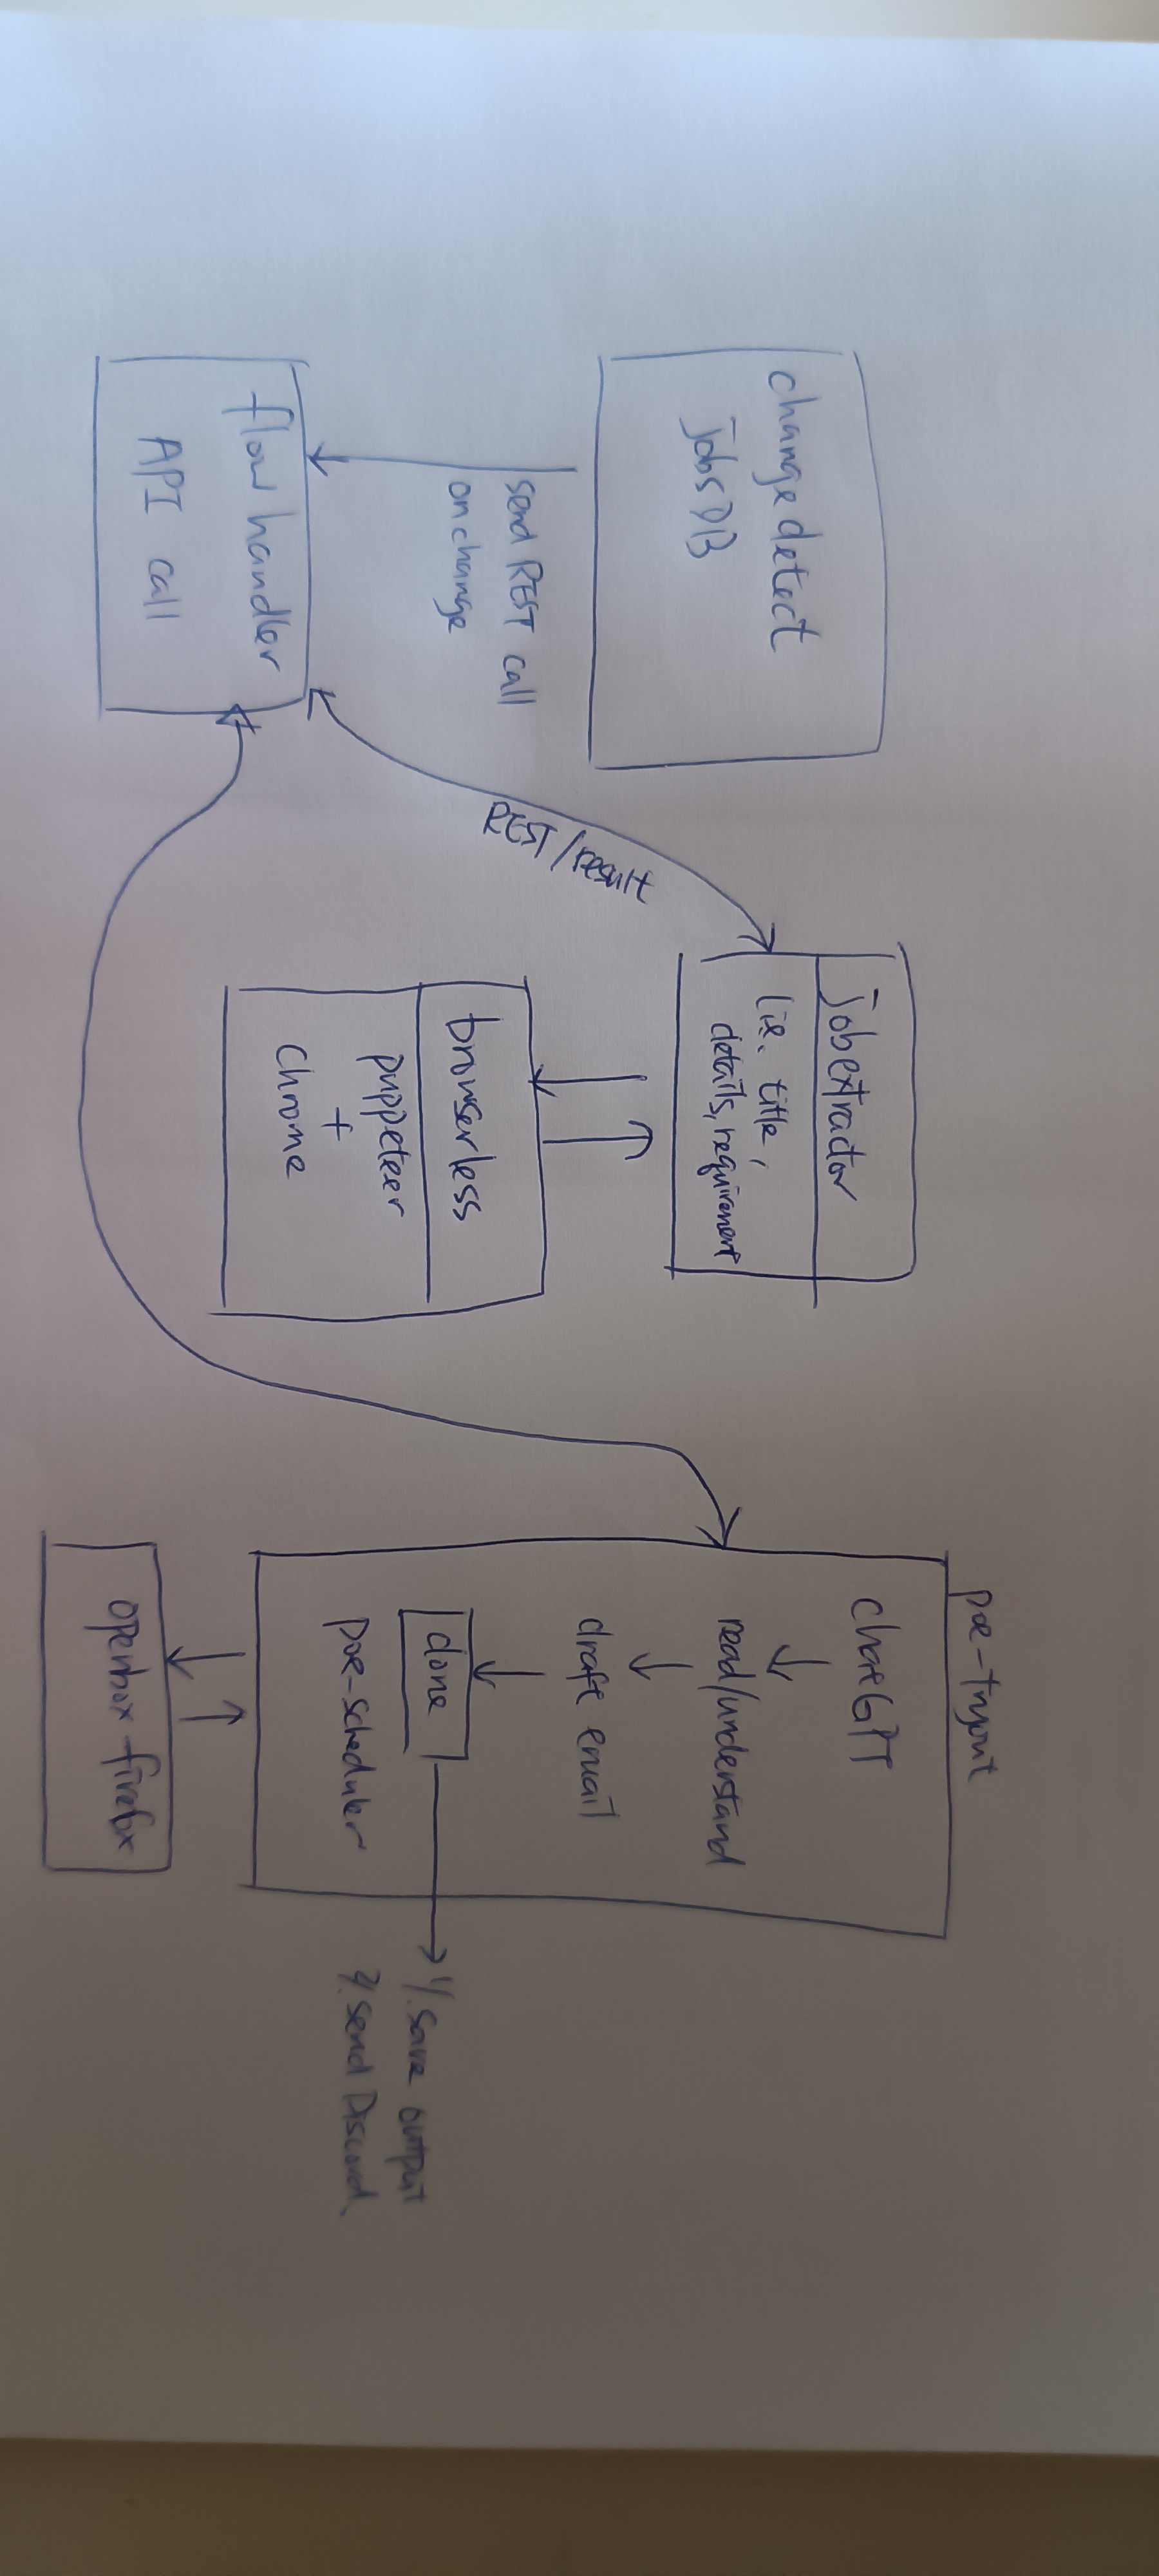 change detect
JobsDB
send REST call
on change
flow handler
API call
REST/result
jobextractor
(ie. title,
details, requirement
browserless
puppeteer
+
chrome
poe-tryout
chatGPT
read/understand
draft email
done
poe-scheduler
1/. save output
2/. send Discord.
openbox firefox